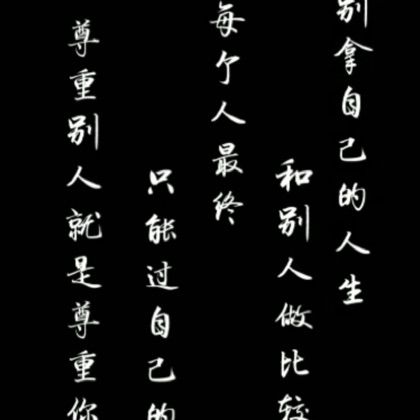 别拿自己的人生
和别人做比较
每个人最终
只能过自己的
尊重别人就是尊重你